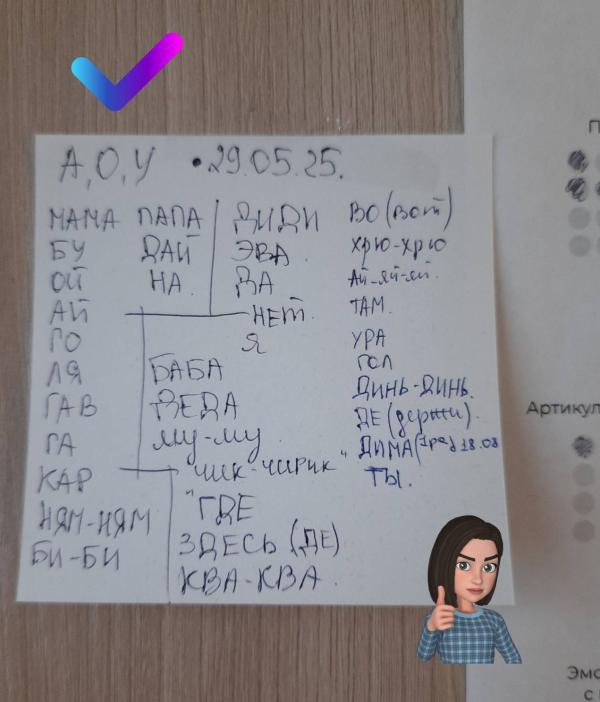 А, О, У • 29.05.25.
МАМА ПАПА
БУ ДАЙ
ОЙ НА
АЙ
ГО
ЛЯ
ГАВ
ГА
КАР
НЯМ-НЯМ
БИ-БИ
ДИДИ
ЭВА
ДА
НЕТ.
Я
БАБА
ДЕДА
МУ-МУ
"ЧИК-ЧИРИК"
"ГДЕ
ЗДЕСЬ (ДЕ)
КВА-КВА.
ВО (вот)
ХРЮ-ХРЮ
АЙ-ЯЙ-ЯЙ.
ТАМ.
УРА
ГОЛ
ДИНЬ-ДИНЬ.
ДЕ (держи).
ДИМА ( 18.08
ТЫ.
П
Артикул
Эмо
с